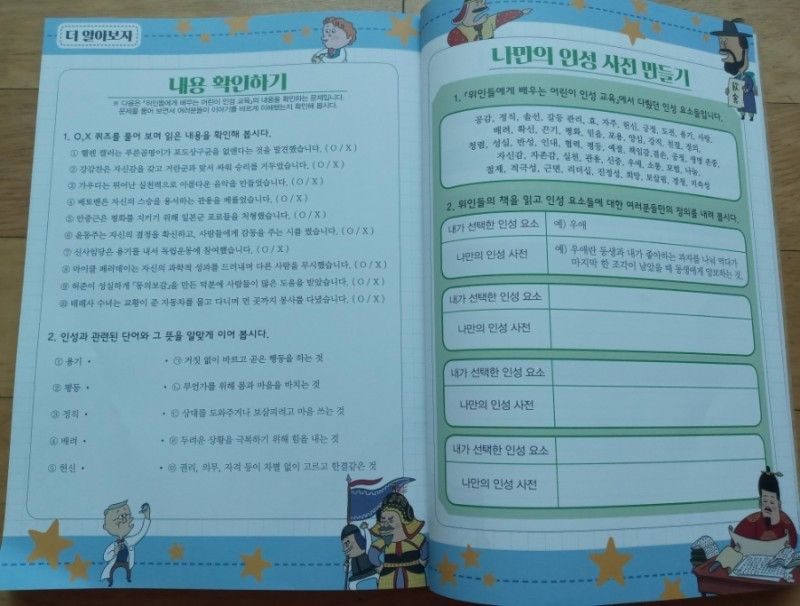 더 알아보자
내용 확인하기
※ 다음은 『위인들에게 배우는 어린이 인성 교육』의 내용을 확인하는 문제입니다.
문제를 풀어 보면서 여러분들이 이야기를 바르게 이해했는지 확인해 봅시다.
1. O,X 퀴즈를 풀어 보며 읽은 내용을 확인해 봅시다.
① 헬렌 켈러는 푸른곰팡이가 포도상구균을 없앤다는 것을 발견했습니다. ( O / X )
② 강감찬은 자신감을 갖고 거란군과 맞서 싸워 승리를 거두었습니다. ( O / X )
③ 가우디는 뛰어난 실천력으로 아름다운 음악을 만들었습니다. ( O / X )
④ 베토벤은 자신의 스승을 용서하는 관용을 베풀었습니다. ( O / X )
⑤ 안중근은 평화를 지키기 위해 일본군 포로들을 처형했습니다. ( O / X )
⑥ 윤동주는 자신의 결정을 확신하고, 사람들에게 감동을 주는 시를 썼습니다. ( O / X )
⑦ 신사임당은 용기를 내서 독립운동에 참여했습니다. ( O / X )
⑧ 마이클 패러데이는 자신의 과학적 성과를 드러내며 다른 사람을 무시했습니다. ( O / X )
⑨ 허준이 성실하게 『동의보감』을 만든 덕분에 사람들이 많은 도움을 받았습니다. ( O / X )
⑩ 테레사 수녀는 교황이 준 자동차를 몰고 다니며 먼 곳까지 봉사를 다녔습니다. ( O / X )
2. 인성과 관련된 단어와 그 뜻을 알맞게 이어 봅시다.
① 용기 • • ㉠ 거짓 없이 바르고 곧은 행동을 하는 것
② 평등 • • ㉡ 무언가를 위해 몸과 마음을 바치는 것
③ 정직 • • ㉢ 상대를 도와주거나 보살피려고 마음 쓰는 것
④ 배려 • • ㉣ 두려운 상황을 극복하기 위해 힘을 내는 것
⑤ 헌신 • • ㉤ 권리, 의무, 자격 등이 차별 없이 고르고 한결같은 것
나만의 인성 사전 만들기
1. 『위인들에게 배우는 어린이 인성 교육』에서 다뤘던 인성 요소들입니다.
공감, 정직, 솔선, 갈등 관리, 효, 자주, 헌신, 긍정, 도전, 용기, 사랑,
배려, 확신, 끈기, 평화, 믿음, 포용, 양심, 감칙, 친절, 정의,
청렴, 성실, 반성, 인내, 협력, 평등, 예절, 책임감, 겸손, 공정, 생명 존중,
자신감, 자존감, 실천, 관용, 신중, 우애, 소통, 모범, 나눔,
절제, 적극성, 근면, 리더십, 진정성, 희망, 보살핌, 경청, 지속성
2. 위인들의 책을 읽고 인성 요소들에 대한 여러분들만의 정의를 내려 봅시다.
내가 선택한 인성 요소 예) 우애
나만의 인성 사전 예) 우애란 동생과 내가 좋아하는 과자를 나눠 먹다가
마지막 한 조각이 남았을 때 동생에게 양보하는 것.
내가 선택한 인성 요소
나만의 인성 사전
내가 선택한 인성 요소
나만의 인성 사전
내가 선택한 인성 요소
나만의 인성 사전